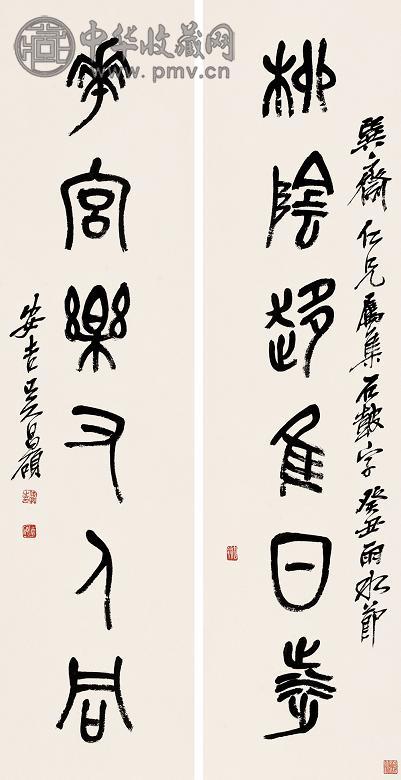 中华收藏网
www.pmv.cn
巽齋仁兄屬集石鼓字癸丑雨水節
柳陰趍隹日步
華宮樂又人同
安吉吳昌碩